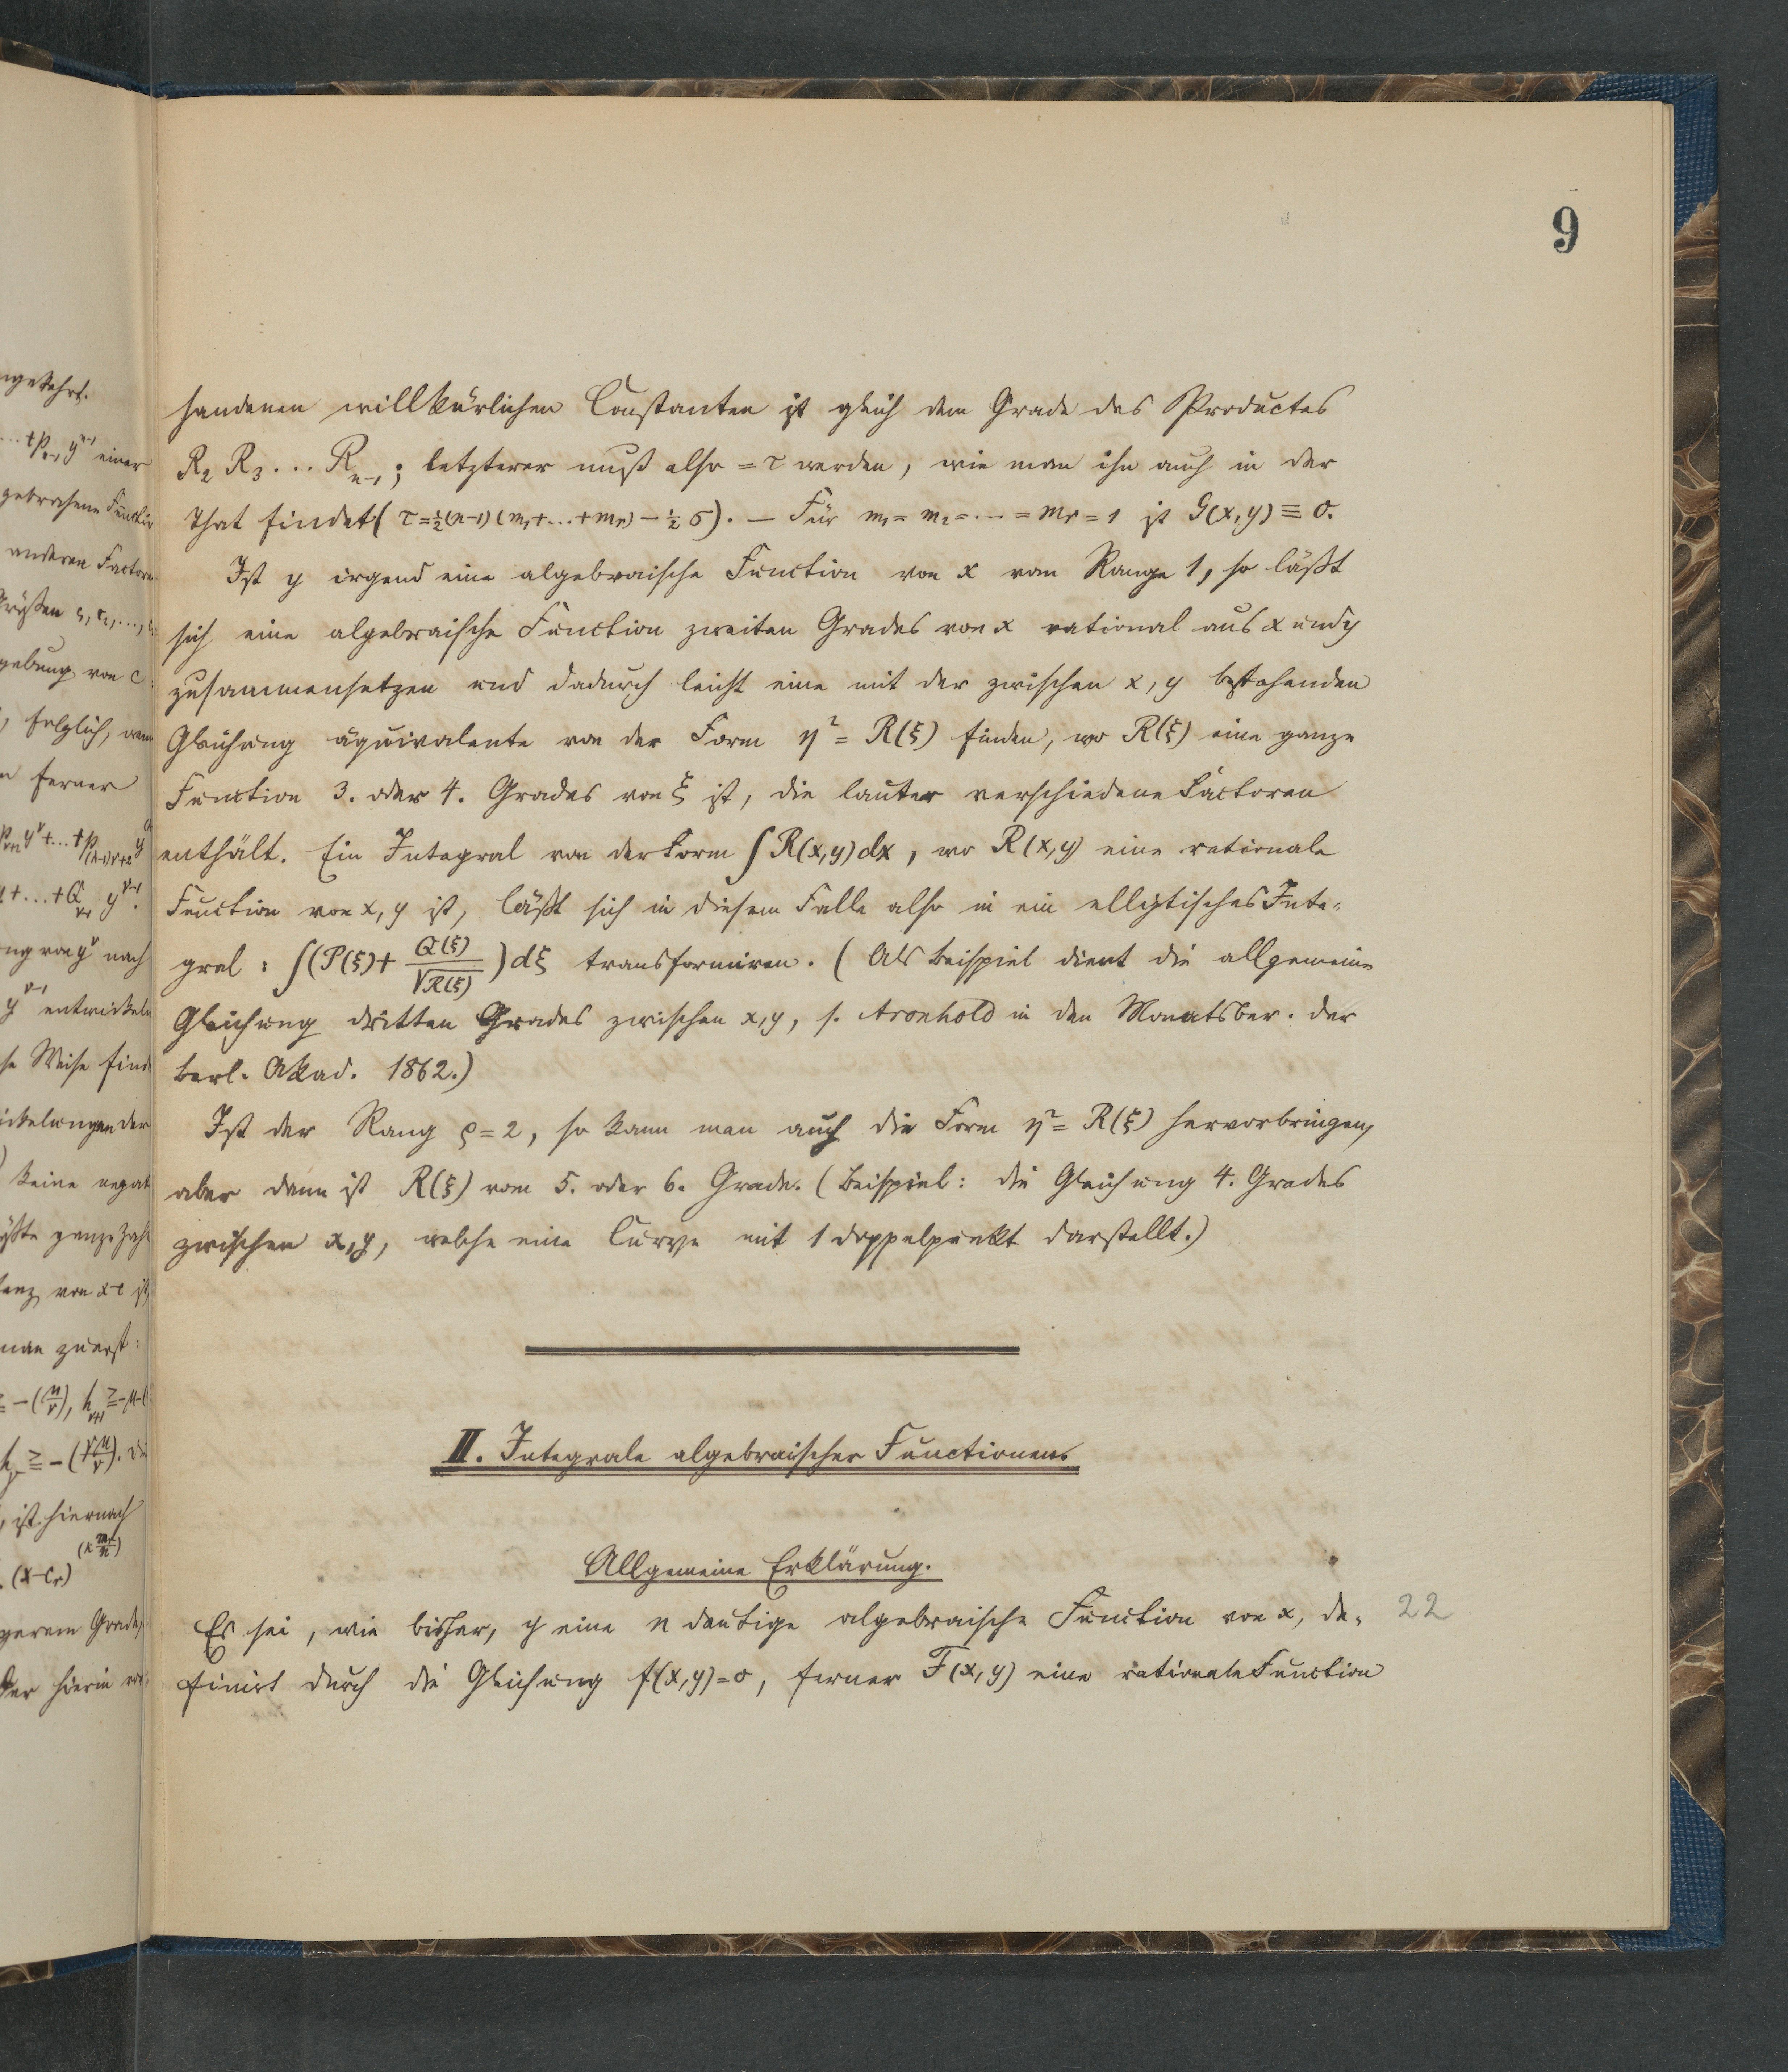 9
handenen willkürlichen Constanten ist gleich dem Grade des Productes
R₂ R₃ ... Rₙ₋₁; letzterer muß also = τ werden, wie man ihn auch in der
That findet (τ = ½(n-1)(m₁+...+mᵣ) - ½σ). — Für m₁ = m₂ = ... = mᵣ = 1 ist G(x,y) ≡ 0.
Ist y irgend eine algebraische Function von x vom Range 1, so läßt
sich eine algebraische Function zweiten Grades von x rational aus x und y
zusammensetzen und dadurch leicht eine mit der zwischen x, y bestehenden
Gleichung äquivalente von der Form η² = R(ξ) finden, wo R(ξ) eine ganze
Function 3. oder 4. Grades von ξ ist, die lauter verschiedene Factoren
enthält. Ein Integral von der Form ∫ R(x,y) dx, wo R(x,y) eine rationale
Function von x, y ist, läßt sich in diesem Falle also in ein elliptisches Inte-
gral: ∫(P(ξ) + Q(ξ)/√R(ξ)) dξ transformiren. (Als Beispiel dient die allgemeine
Gleichung dritten Grades zwischen x, y, s. Aronhold in den Monatsber. der
Berl. Akad. 1862.)
Ist der Rang ρ = 2, so kann man auch die Form η² = R(ξ) hervorbringen,
aber dann ist R(ξ) vom 5. oder 6. Grade. (Beispiel: die Gleichung 4. Grades
zwischen x, y, welche eine Curve mit 1 Doppelpunkt darstellt.)
II. Integrale algebraischer Functionen
Allgemeine Erklärung.
Es sei, wie bisher, y eine n deutige algebraische Function von x, de- 22
finirt durch die Gleichung f(x,y) = 0, ferner F(x,y) eine rationale Function